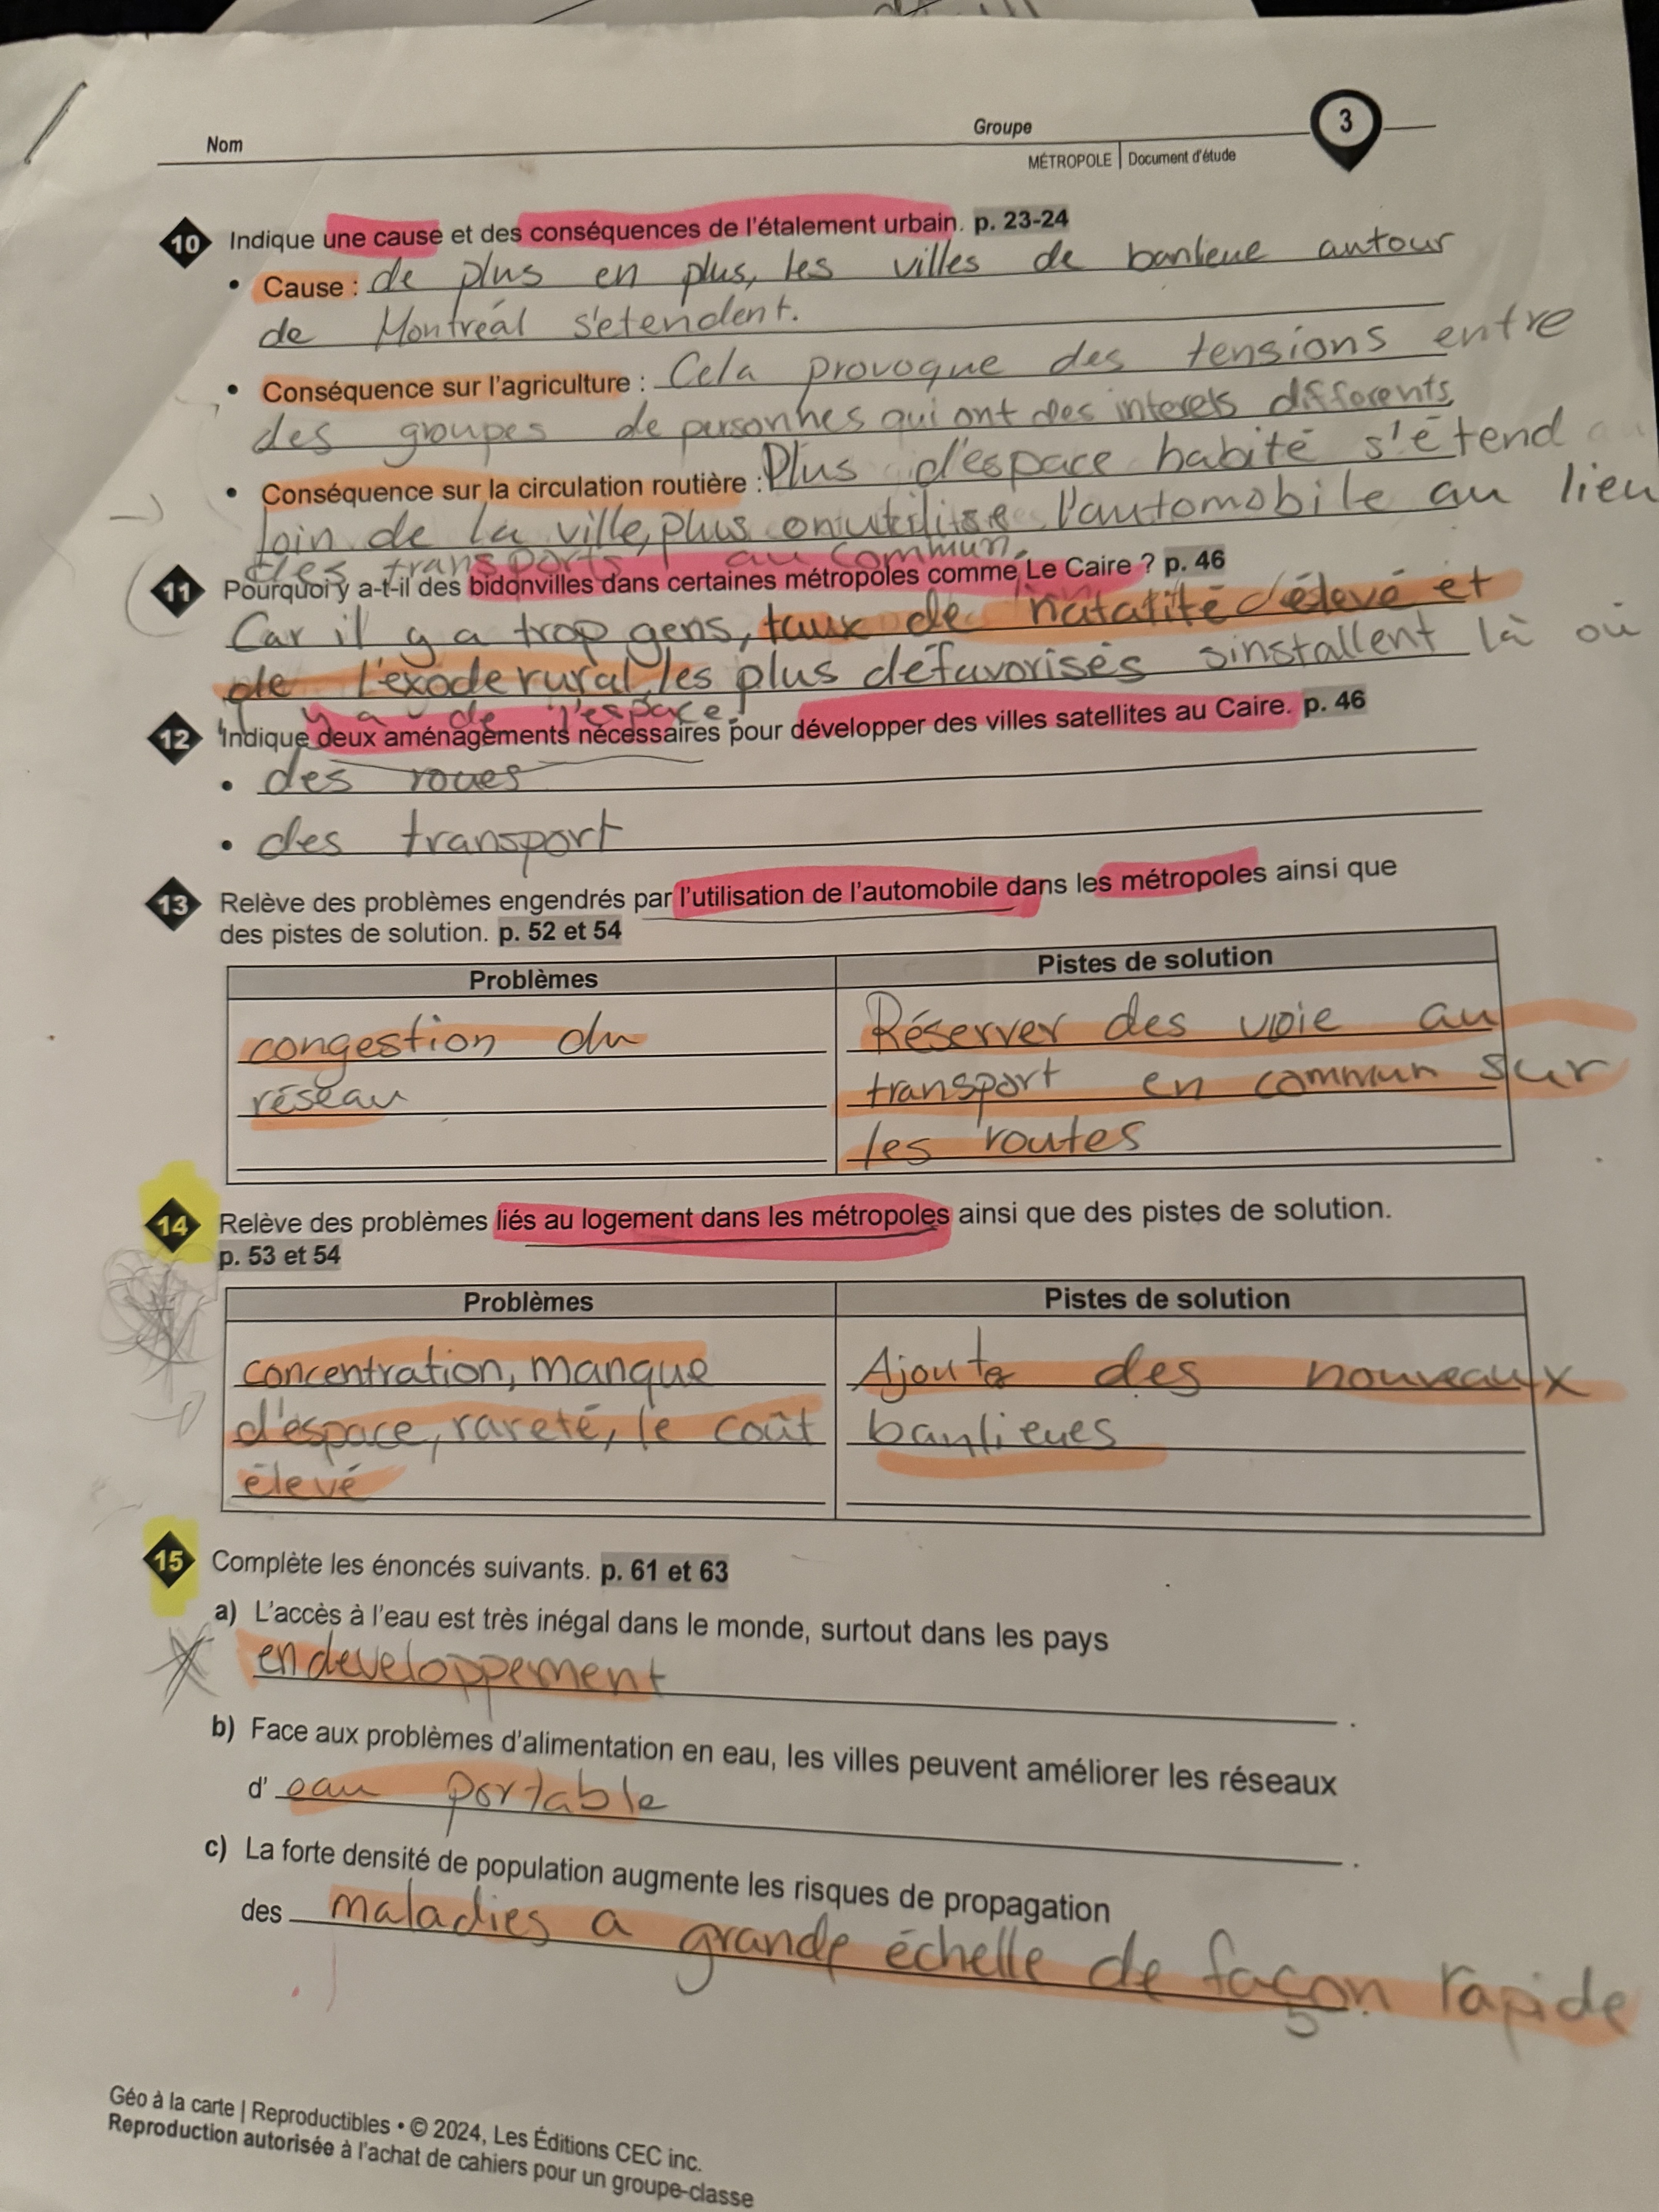 Nom
Groupe
3
MÉTROPOLE | Document d'étude
10 Indique une cause et des conséquences de l'étalement urbain. p. 23-24
• Cause : de plus en plus, les villes de banlieue autour
de Montréal s'etendent.
• Conséquence sur l'agriculture : Cela provoque des tensions entre
des groupes de personnes qui ont des interets differents
• Conséquence sur la circulation routière : Plus d'espace habité s'étend
loin de la ville, plus on utilise l'automobile au lieu
des transports au commun.
11 Pourquoi y a-t-il des bidonvilles dans certaines métropoles comme Le Caire ? p. 46
Car il y a trop gens, taux de natalité élevé et
de l'exode rural, les plus défavorisés sinstallent là où
y a de l'espace.
12 Indique deux aménagements nécessaires pour développer des villes satellites au Caire. p. 46
• des roues
• des transport
13 Relève des problèmes engendrés par l'utilisation de l'automobile dans les métropoles ainsi que
des pistes de solution. p. 52 et 54
Problèmes
Pistes de solution
congestion du
réseau
Réserver des voie au
transport en commun sur
les routes
14 Relève des problèmes liés au logement dans les métropoles ainsi que des pistes de solution.
p. 53 et 54
Problèmes
Pistes de solution
concentration, manque
d'espace, rareté, le coût
élevé
Ajouter des nouveaux
banlieues
15 Complète les énoncés suivants. p. 61 et 63
a) L'accès à l'eau est très inégal dans le monde, surtout dans les pays
en developpement .
b) Face aux problèmes d'alimentation en eau, les villes peuvent améliorer les réseaux
d' eau portable .
c) La forte densité de population augmente les risques de propagation
des maladies a grande échelle de façon rapide
Géo à la carte | Reproductibles • © 2024, Les Éditions CEC inc.
Reproduction autorisée à l'achat de cahiers pour un groupe-classe